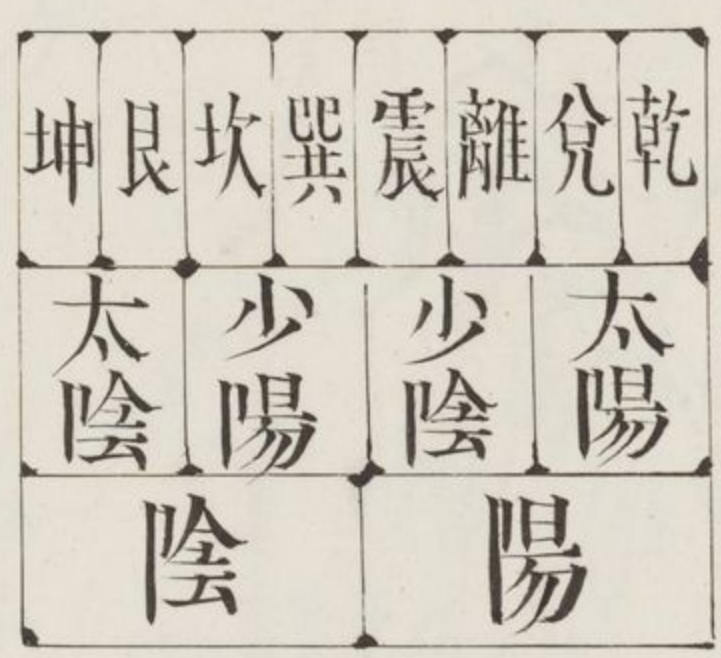 乾兌離震巽坎艮坤
太陽 少陰 少陽 太陰
陽 陰